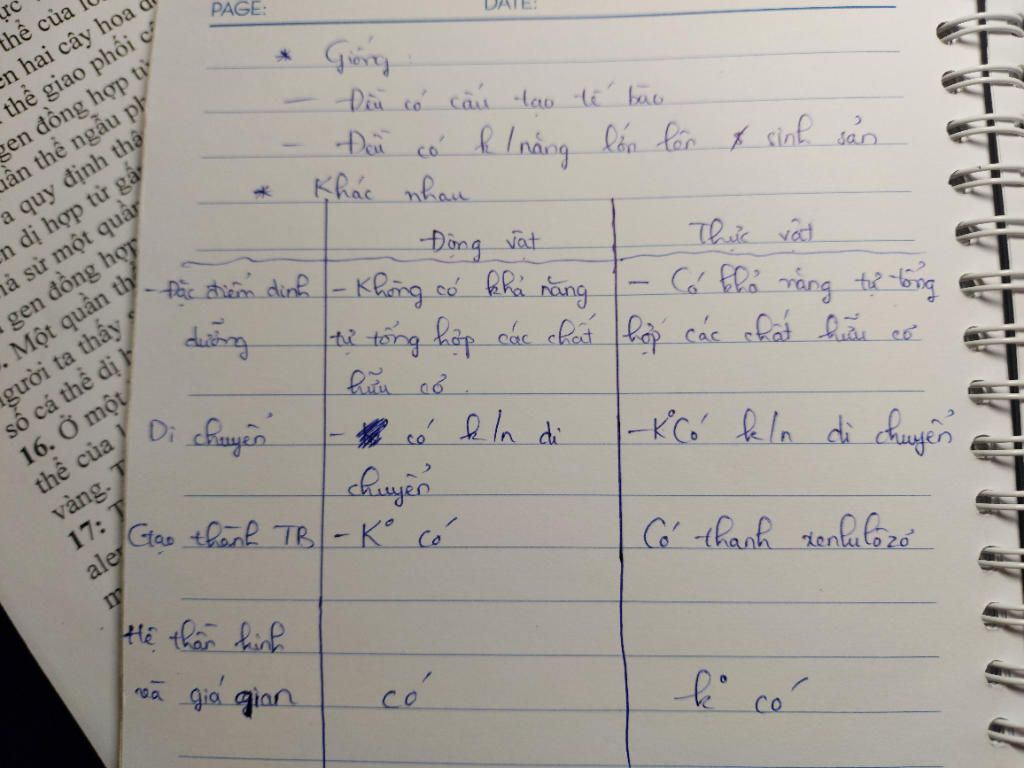 PAGE: DATE:
* Giống
- Đều có cấu tạo tế bào
- Đều có k/năng lớn lên sinh sản
* Khác nhau
Động vật Thực vật
- Đặc điểm dinh - Không có khả năng - Có khả năng tự tổng
dưỡng tự tổng hợp các chất hợp các chất hữu cơ
hữu cơ.
Di chuyển - có k/n di - K° Có k/n di chuyển
chuyển
Ctạo thành TB - K° có Có thanh xenlulôzơ
Hệ thần kinh
và giá gian có k° có
thể của
en hai cây hoa
thể giao phối
gen đồng hợp tử
uần thể ngẫu
a quy định
n dị hợp tử
ả sử một quần
gen đồng hợp
. Một quần thể
gười ta thấy
số cá thể dị
16. Ở một
thể của
vàng.
17: